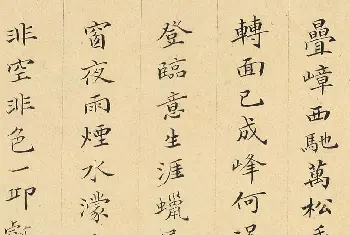 疊嶂西馳萬松
轉面已成峰何
登臨意生涯蠟
窗夜雨煙水濛
非空非色一卭